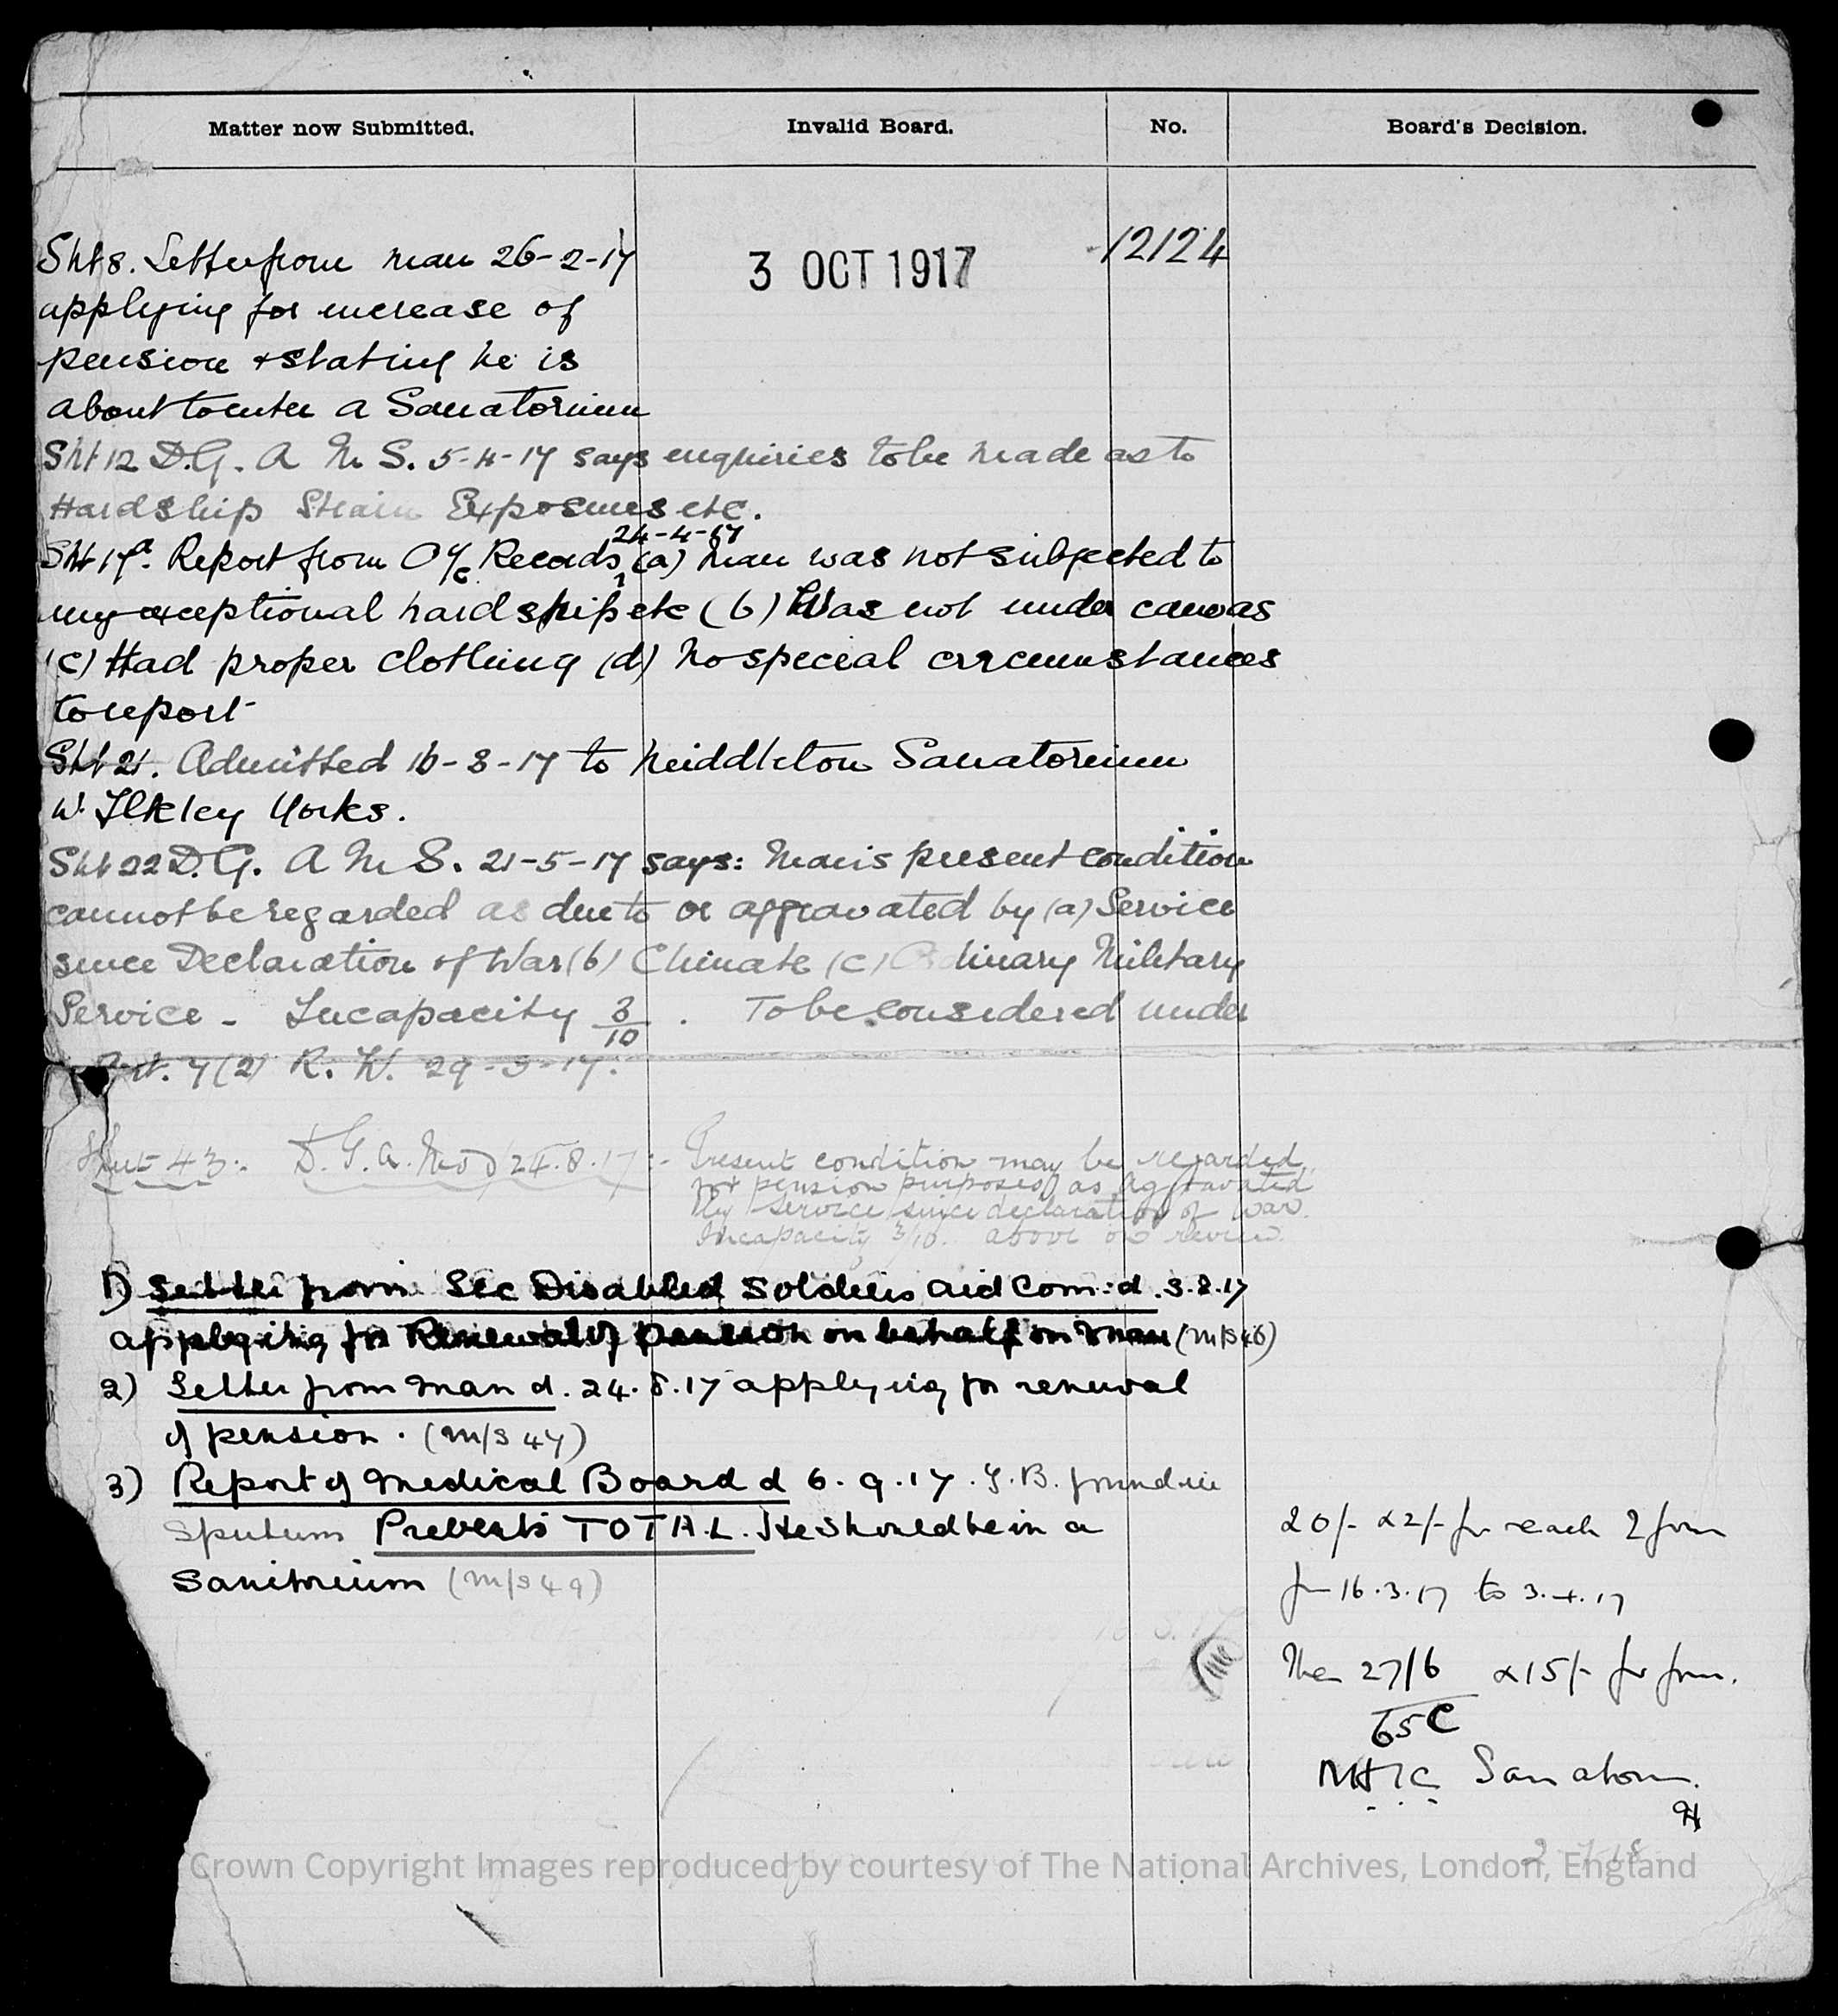 Matter now Submitted.
Invalid Board.
No.
Board's Decision.
Sht 8. Letter from man 26-2-17
3 OCT 1917
12124
applying for increase of
pension + stating he is
about to enter a Sanatorium
Sht 12 D.G. A M S. 5-4-17 says enquiries to be made as to
Hardship Strain Exposures etc.
24-4-17
Sht 17a. Report from O/c Records, (a) Man was not subjected to
any exceptional hardship etc (b) Was not under canvas
(c) Had proper clothing (d) No special circumstances
to report
Sht 21. Admitted 16-3-17 to Middleton Sanatorium
Ilkley Yorks.
Sht 22 D.G. A M S. 21-5-17 says: Man's present condition
cannot be regarded as due to or aggravated by (a) Service
since Declaration of War (b) Climate (c) Ordinary Military
Service - Incapacity 3/10. To be considered under
Art. 7(2) R. W. 29-3-17.
Sheet 43:. D.G.A. 24.8.17:- Present condition may be regarded
for pension purposes as aggravated
by service since declaration of war.
Incapacity 3/10. above on review.
1) Letter from Sec Disabled Soldiers Aid Com: d. 3.8.17
applying for Renewal of Pension on behalf on man (M/S 46)
2) Letter from man d. 24.8.17 applying for renewal
of pension. (M/S 47)
3) Report of Medical Board d 6.9.17. T.B. found in
sputum Prevents TOTAL. He should be in a
Sanitorium (M/S 49)
20/- & 2/- for each 2 from
16.3.17 to 3.4.17
Then 27/6 & 15/- for
65C
Sanatorm.
Crown Copyright Images reproduced by courtesy of The National Archives, London, England